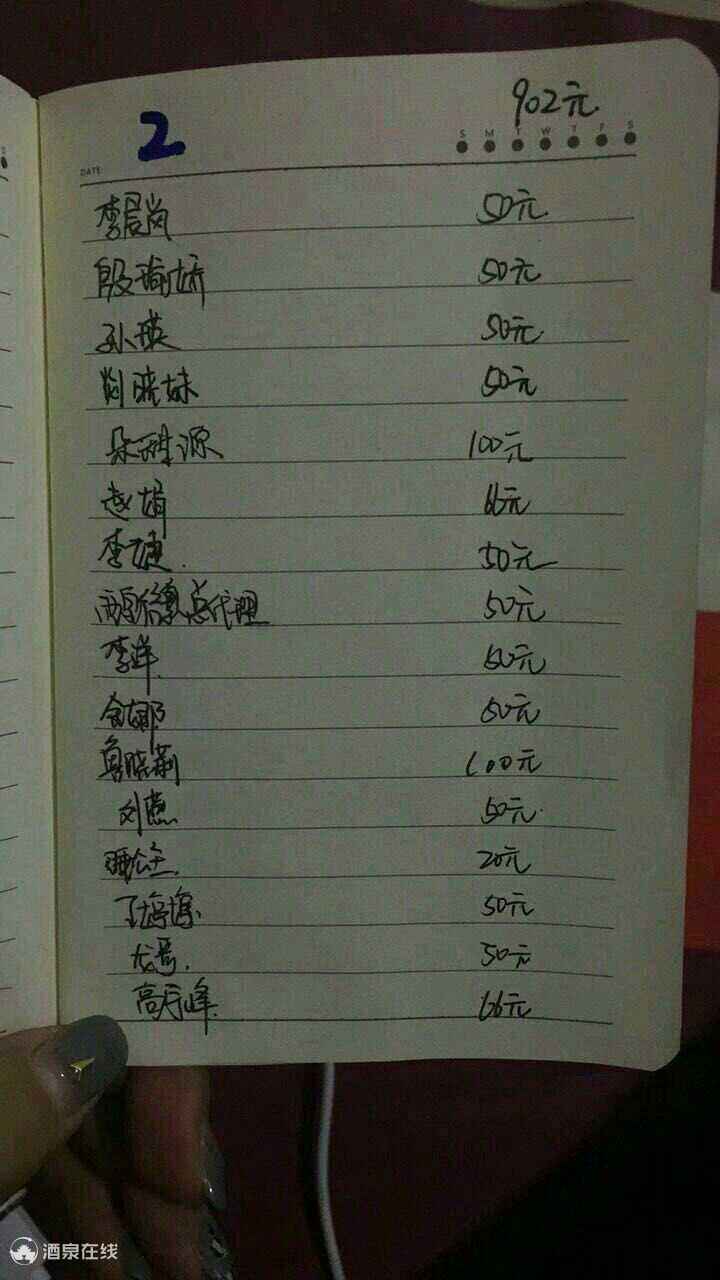 902元
2
S M T W T F S
DATE
李晨岚 50元
殷瑜娇 50元
孙瑛 50元
刘晓妹 50元
100元
赵娟 66元
李婕 50元
总代理 50元
李洋 50元
50元
鲁晓莉 100元
刘燕 50元
睡公主 20元
丁婷婷 50元
50元
高 峰 66元
酒泉在线